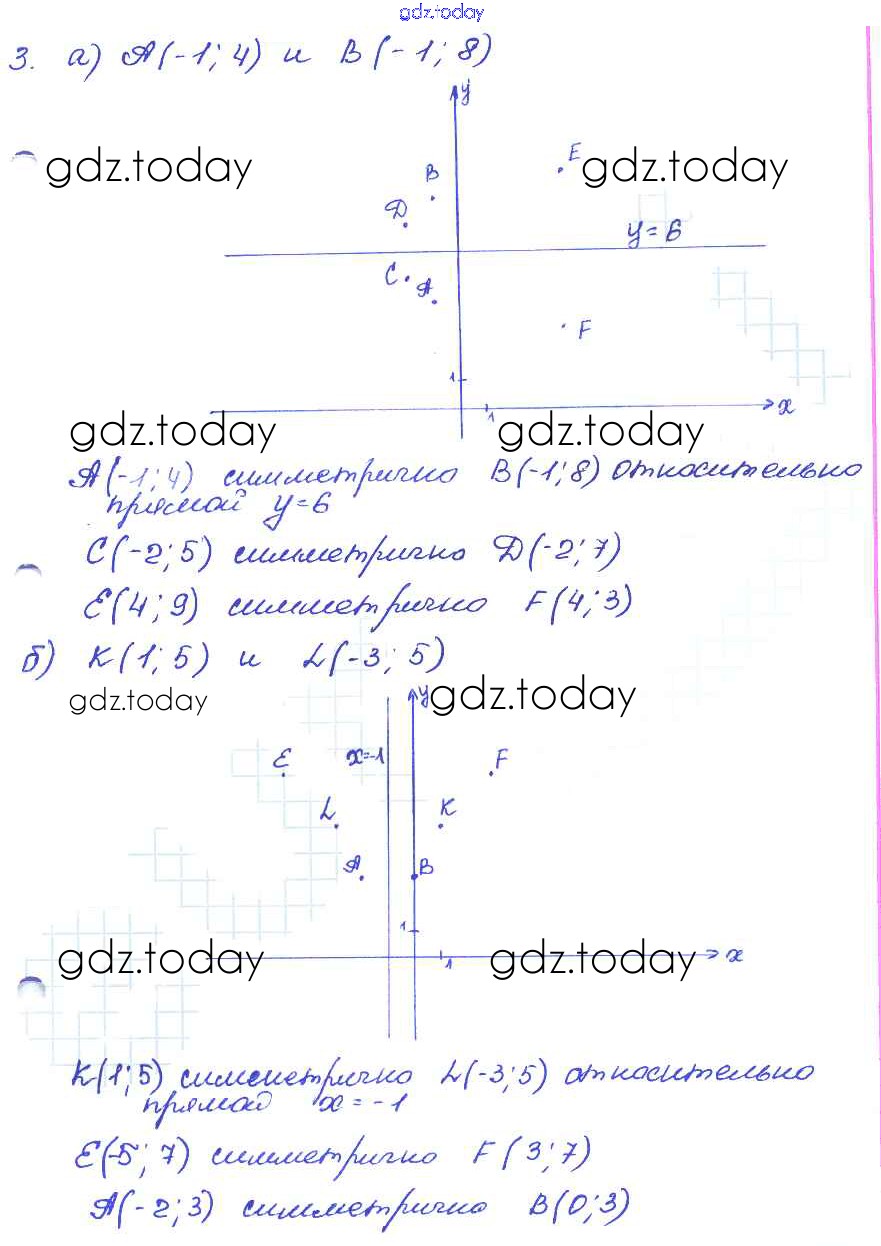 gdz.today
3. а) A(-1; 4) и B(-1; 8)
y
gdz.today
E
gdz.today
B
D
y=6
C
A
F
1
1
x
gdz.today
gdz.today
A(-1; 4) симметрично B(-1; 8) относительно
прямой y=6
C(-2; 5) симметрично D(-2; 7)
E(4; 9) симметрично F(4; 3)
б) K(1; 5) и L(-3; 5)
gdz.today
y
gdz.today
E
x=-1
F
L
K
A
B
1
gdz.today
1
gdz.today
x
K(1; 5) симметрично L(-3; 5) относительно
прямой x=-1
E(-5; 7) симметрично F(3; 7)
A(-2; 3) симметрично B(0; 3)